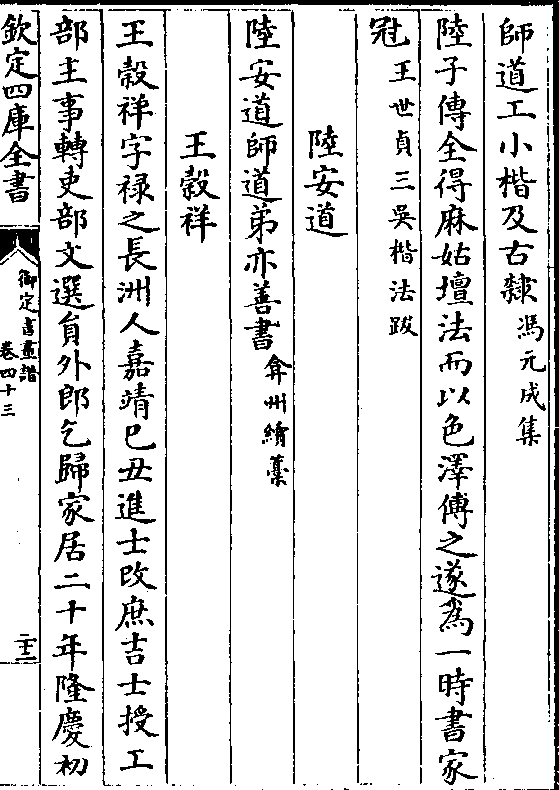 師道工小楷及古隸馮元成集
陸子傳全得麻姑壇法而以色澤傅之遂為一時書家
冠王世貞三吳楷法跋
陸安道
陸安道師道弟亦善書弇州續藁
王榖祥
王榖祥字祿之長洲人嘉靖己丑進士改庶吉士授工
部主事轉吏部文選負外郎乞歸家居二十年隆慶初
欽定四庫全書
御定書畫譜
卷四十三
二十二